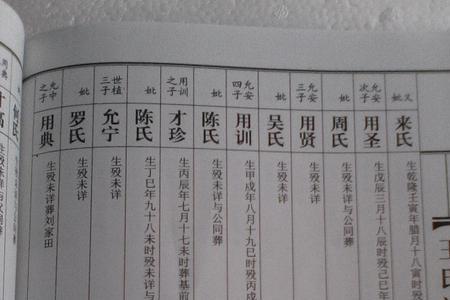 又妣 来氏 生乾隆壬寅年腊月十八寅时殁
允安次子 用圣 生戊辰三月十八辰时殁己巳年
妣 周氏 生殁未详与公同葬
允安三子 用贤 生殁未详
妣 吴氏 生殁未详
允安四子 用训 生甲戌年八月十九巳时殁丙戌
妣 陈氏 生殁未详与公同葬
用训之子 才珍 生丙辰年七月十七未时葬基前
妣 陈氏 生丁巳年九十八未时殁未详与
世植三子 允宁 生殁未详
妣 罗氏 生殁未详
允中之子 用典 生殁未详葬刘家田
何氏 生殁未详